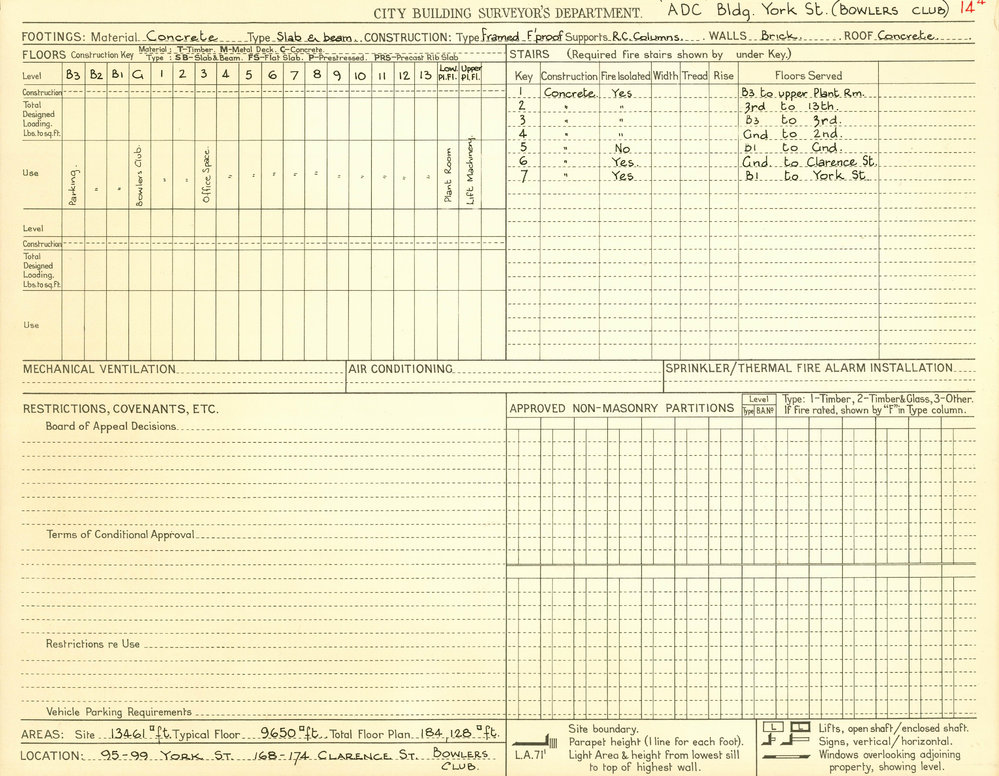 CITY BUILDING SURVEYOR'S DEPARTMENT. ADC Bldg. York St. (BOWLERS CLUB) 144
FOOTINGS: Material Concrete Type Slab & beam. CONSTRUCTION: Type Framed F'proof Supports R.C. Columns. WALLS Brick. ROOF Concrete
FLOORS Construction Key Material: T-Timber. M-Metal Deck. C-Concrete.
Type: SB-Slab & Beam. FS-Flat Slab. P-Prestressed. PRS-Precast Rib Slab
Level B3 B2 B1 G 1 2 3 4 5 6 7 8 9 10 11 12 13 Low. Pl.Fl. Upper Pl.Fl.
Construction
Total
Designed
Loading.
Lbs. to sq.ft.
Use Parking. " " Bowlers Club " " Office Space. " " " " " " " " " " Plant Room Lift Machinery.
Level
Construction
Total
Designed
Loading.
Lbs. to sq.ft.
Use
STAIRS (Required fire stairs shown by under Key.)
Key Construction Fire Isolated Width Tread Rise Floors Served
1 Concrete Yes B3 to upper Plant Rm.
2 " " 3rd to 13th.
3 " " B3 to 3rd.
4 " " Gnd to 2nd.
5 " No B1 to Gnd.
6 " Yes. Gnd. to Clarence St.
7 " Yes B1 to York St
MECHANICAL VENTILATION
AIR CONDITIONING
SPRINKLER/THERMAL FIRE ALARM INSTALLATION
RESTRICTIONS, COVENANTS, ETC.
Board of Appeal Decisions
Terms of Conditional Approval
Restrictions re Use
Vehicle Parking Requirements
APPROVED NON-MASONRY PARTITIONS Level Type B.A.Nº Type: 1-Timber, 2-Timber & Glass, 3-Other.
If Fire rated, shown by "F" in Type column.
AREAS: Site 13461 □ft. Typical Floor 9650 □ft. Total Floor Plan 184,128 □ft.
LOCATION: 95-99 YORK ST. 168-174 CLARENCE ST. BOWLERS
CLUB.
Site boundary.
Parapet height (1 line for each foot).
L.A.71' Light Area & height from lowest sill
to top of highest wall.
L L Lifts, open shaft/enclosed shaft.
Signs, vertical/horizontal.
Windows overlooking adjoining
property, showing level.